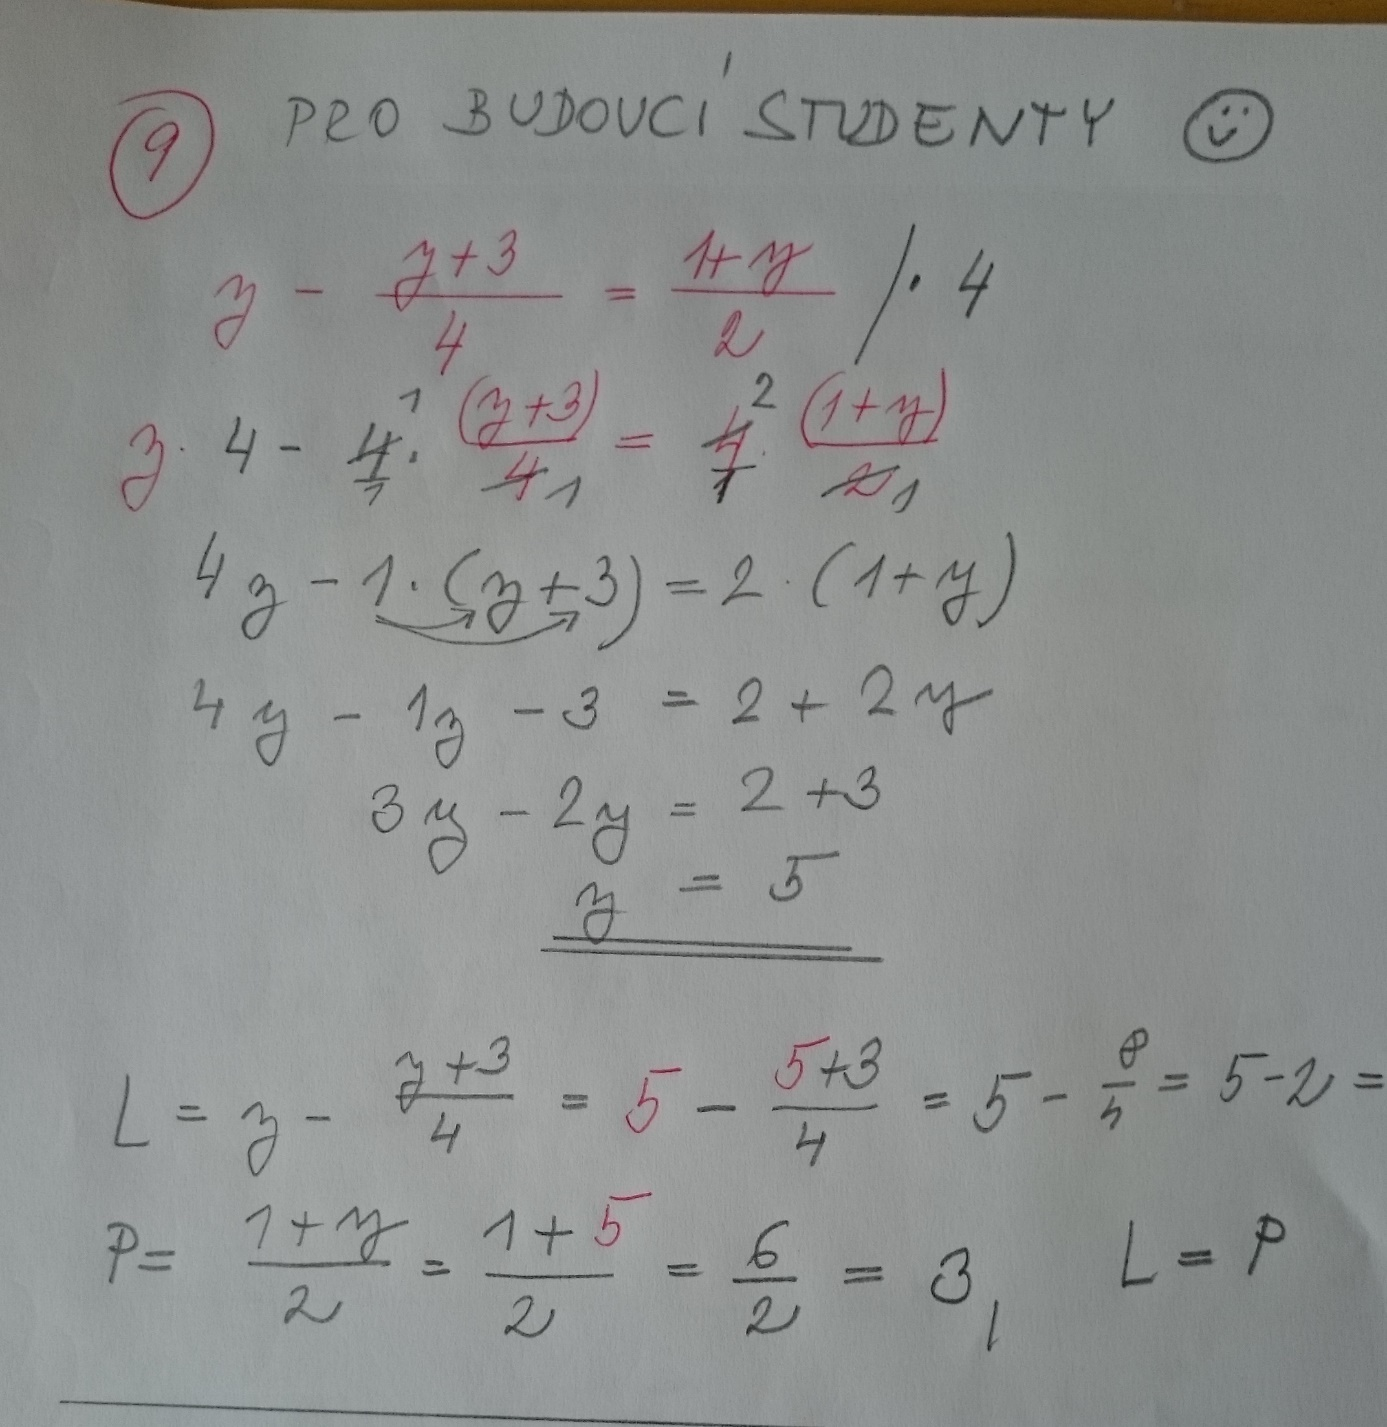 9 PRO BUDOUCÍ STUDENTY
y - (y+3)/4 = (1+y)/2 /· 4
y · 4 - 4/1 · (y+3)/4 = 4/1 · (1+y)/2
4y - 1·(y+3) = 2·(1+y)
4y - 1y - 3 = 2 + 2y
3y - 2y = 2 + 3
y = 5
L = y - (y+3)/4 = 5 - (5+3)/4 = 5 - 8/4 = 5-2 =
P = (1+y)/2 = (1+5)/2 = 6/2 = 3, L = P